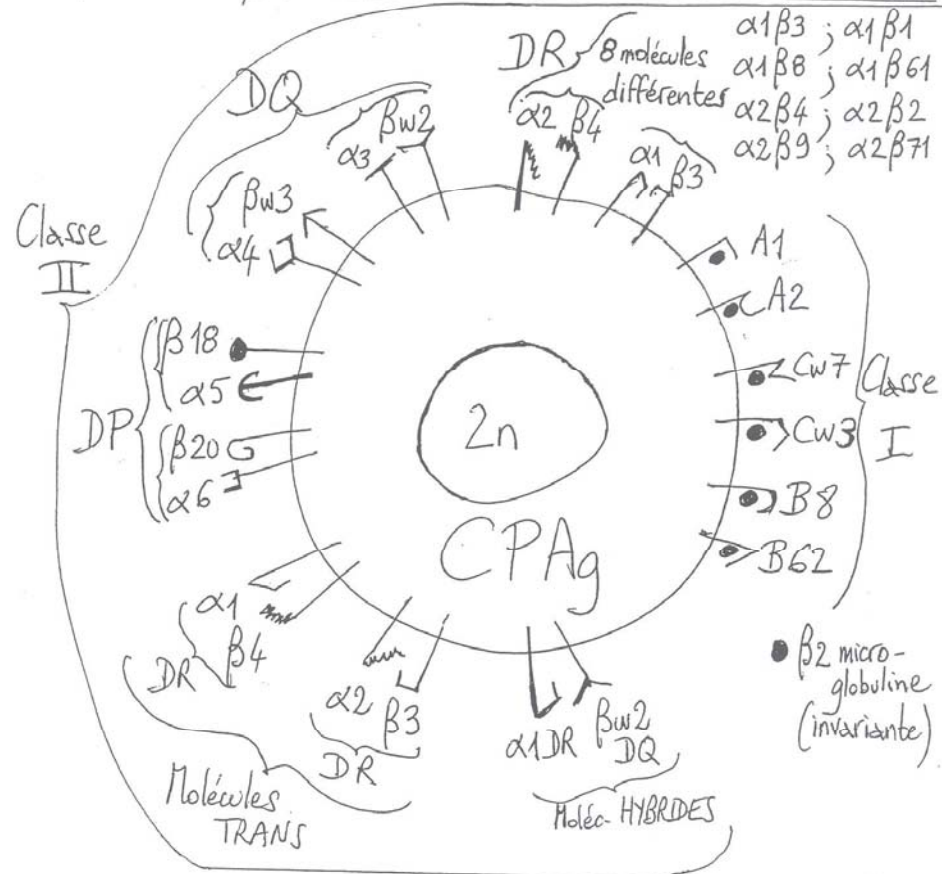 DR
8 molécules
différentes
α1β3 ; α1β1
α1β8 ; α1β61
α2β4 ; α2β2
α2β9 ; α2β71
DQ
α3 βw2
α2 β4
α1 β3
βw3
α4
Classe
II
DP
β18
α5
β20
α6
A1
A2
Cw7
Cw3
B8
B62
Classe
I
2n
CPAg
α1
β4
DR
α2 β3
DR
Molécules
TRANS
α1 DR βw2
DQ
Moléc. HYBRIDES
β2 micro-
globuline
(invariante)